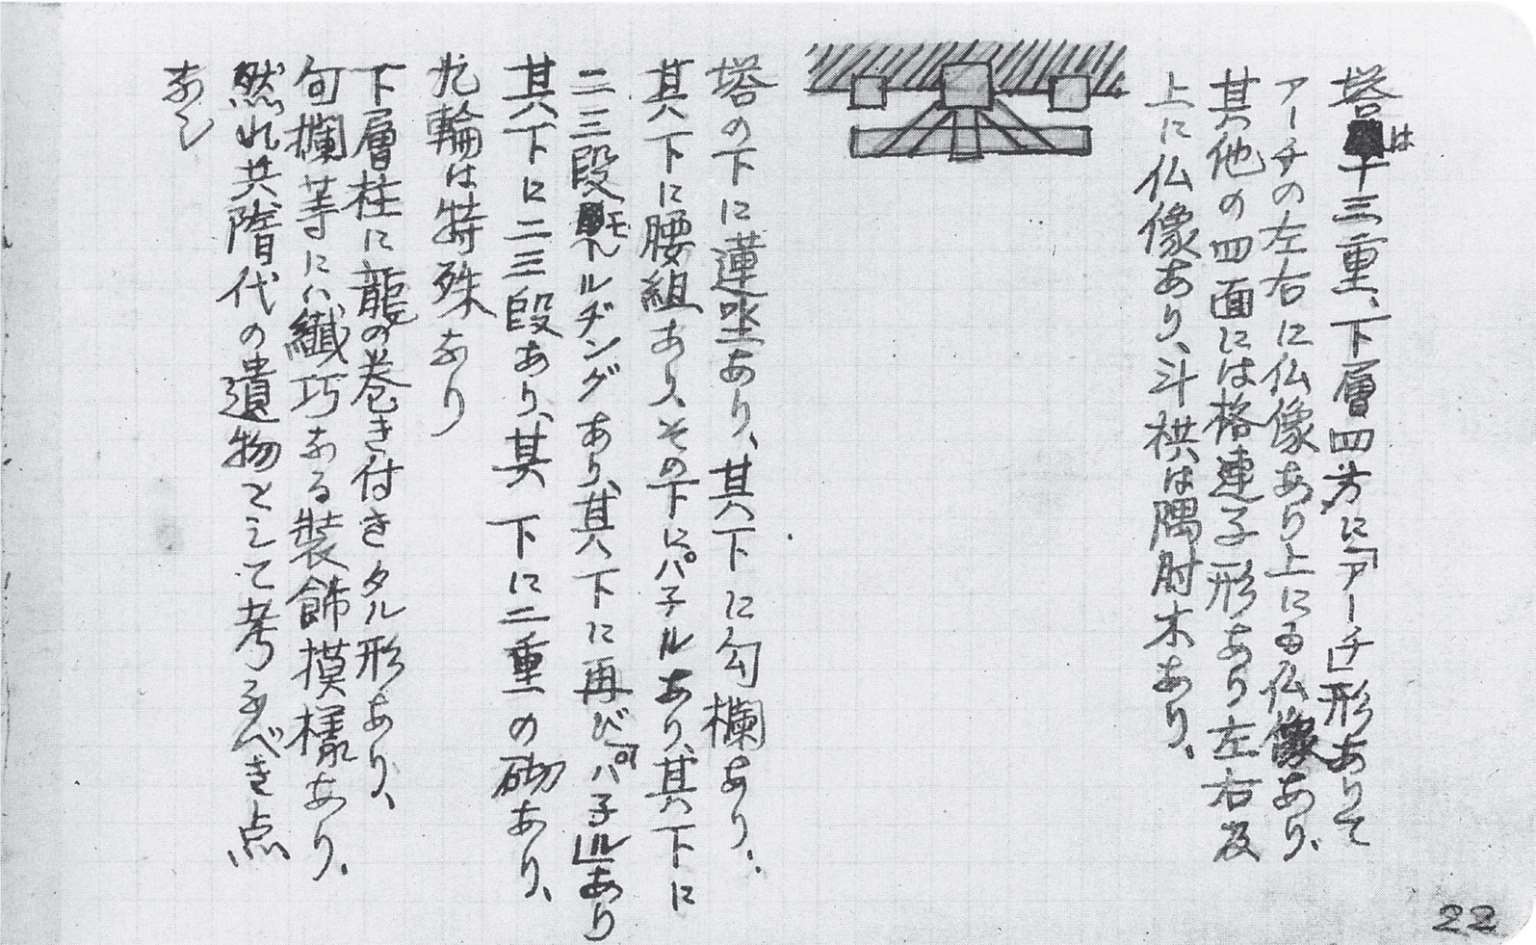 塔は十三重、下層四方に「アーチ」形ありて
アーチの左右に仏像あり上にも仏像あり、
其他の四面には格連子形あり左右及
上に仏像あり、斗栱は隅肘木あり、
塔の下に蓮坐あり、其下に勾欄あり、
其下に腰組あり、その下にパネルあり、其下に
二三段モールヂングあり、其下に再び「パネル」あり
其下に二三段あり、其下に二重の砌あり、
九輪は特殊なり
下層柱に龍の巻き付きタル形あり、
勾欄等には繊巧なる装飾摸様あり、
然れ共隋代の遺物として考ふべき点
なし
22